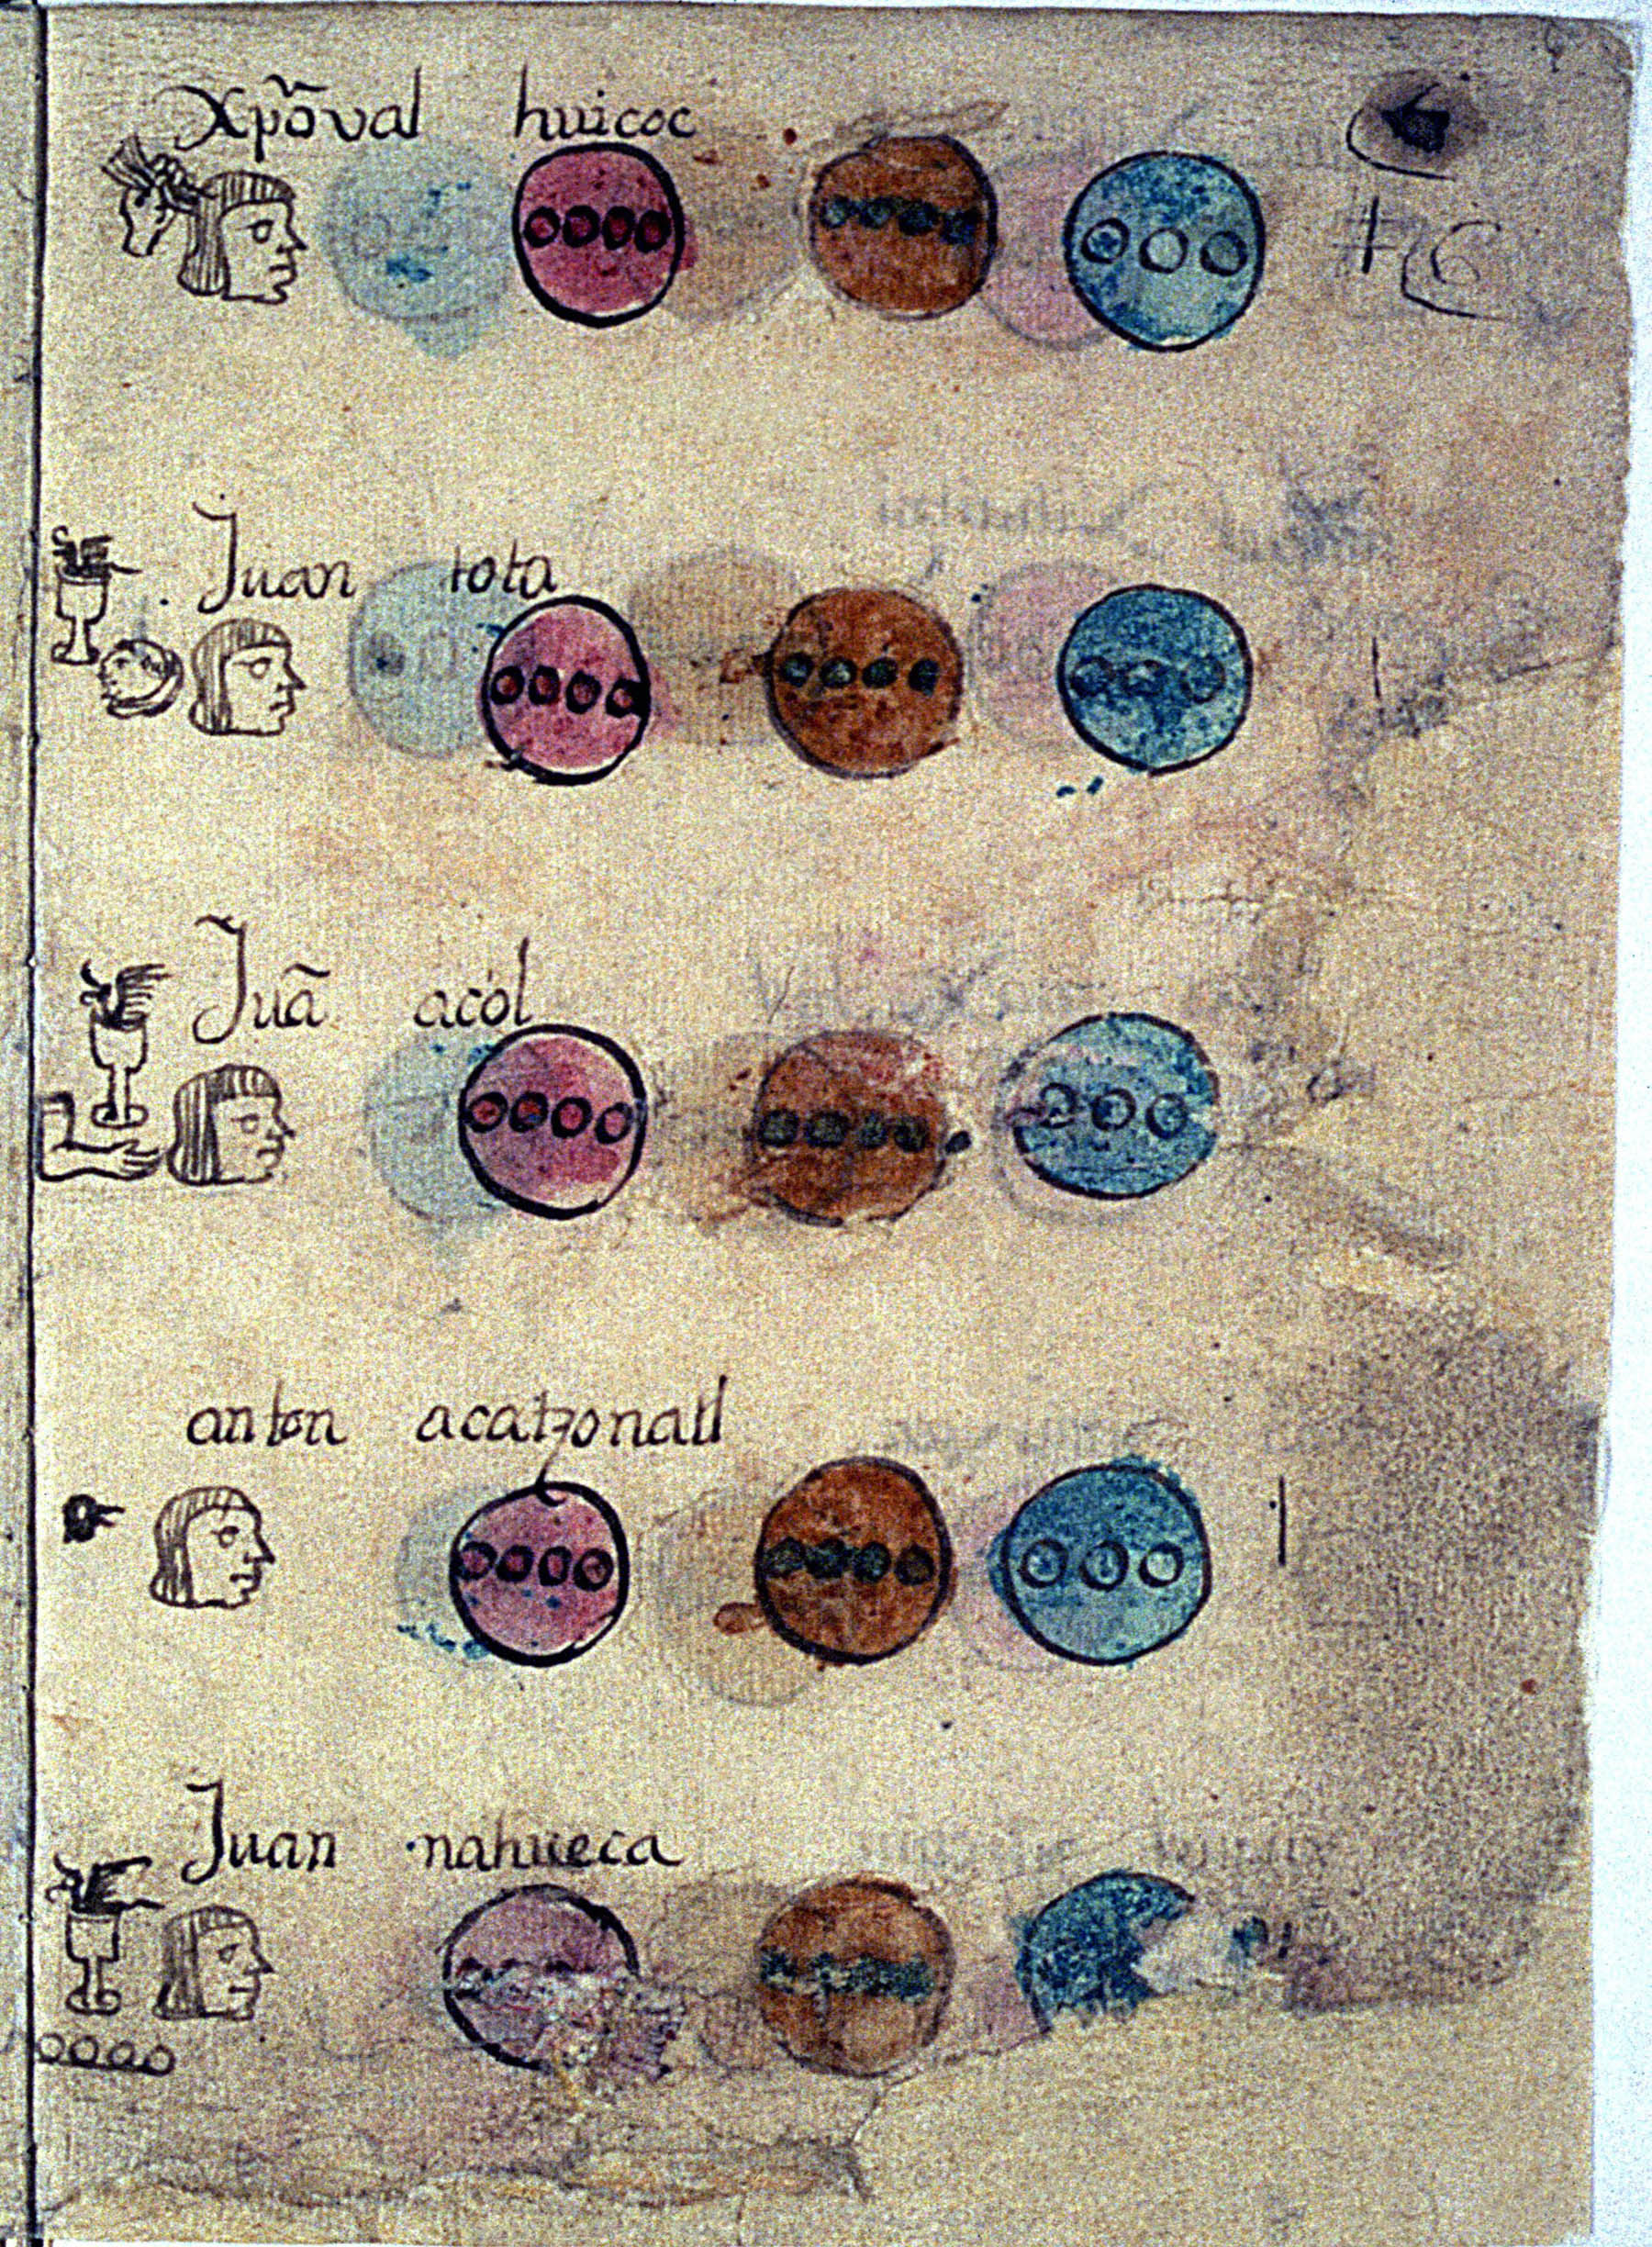 Xp̃oval huicoc
Juan tota
Juã acol
anton acatzonatl
Juan nahueca